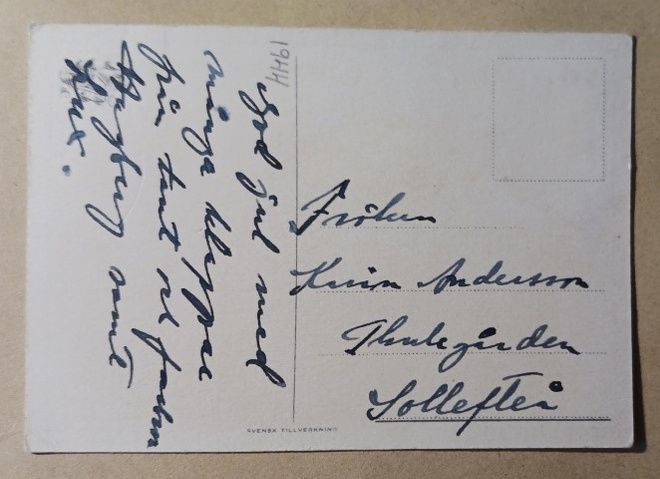 1944
God jul med
många klappar
från tant o farbror
Hagberg samt
Fröken
Karin Andersson
Thulegården
Sollefteå
SVENSK TILLVERKNING